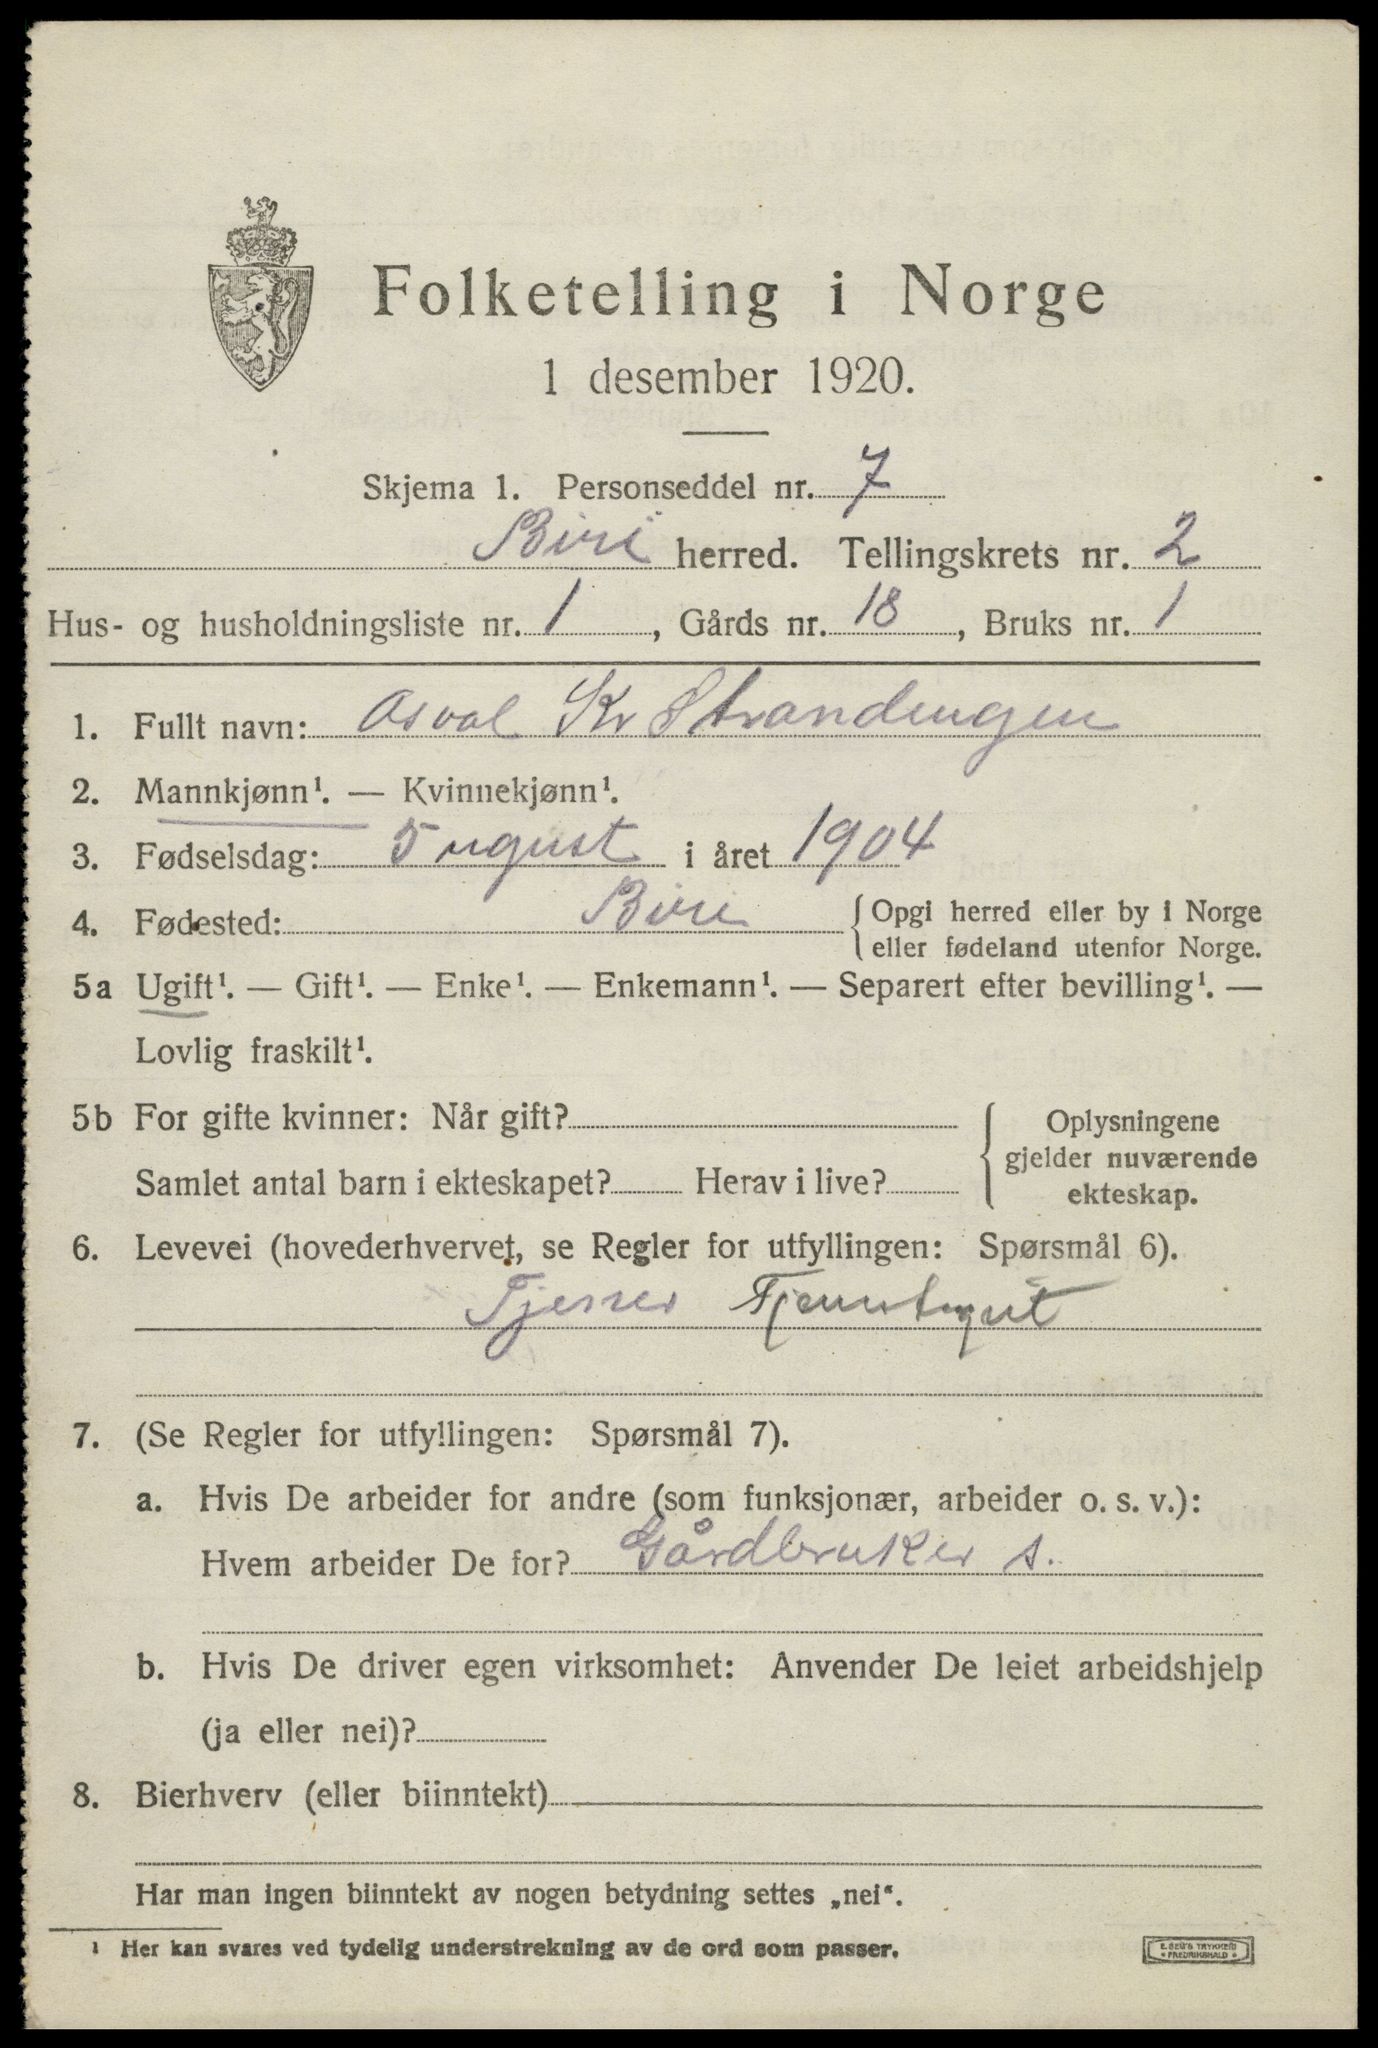 Folketelling i Norge
1 desember 1920.
Skjema 1. Personseddel nr. 7
Biri herred. Tellingskrets nr. 2
Hus- og husholdningsliste nr. 1, Gårds nr. 18, Bruks nr. 1
1. Fullt navn: Asval Kr Strandengen
2. Mannkjønn¹. — Kvinnekjønn¹.
3. Fødselsdag: 5 ugust i året 1904
4. Fødested: Biri {Opgi herred eller by i Norge
eller fødeland utenfor Norge.
5a Ugift¹. — Gift¹. — Enke¹. — Enkemann¹. — Separert efter bevilling¹. —
Lovlig fraskilt¹.
5b For gifte kvinner: Når gift?
Samlet antal barn i ekteskapet? Herav i live?
Oplysningene
gjelder nuværende
ekteskap.
6. Levevei (hovederhvervet, se Regler for utfyllingen: Spørsmål 6).
Tjener Tjenestegut
7. (Se Regler for utfyllingen: Spørsmål 7).
a. Hvis De arbeider for andre (som funksjonær, arbeider o. s. v.):
Hvem arbeider De for? Gårdbruker s.
b. Hvis De driver egen virksomhet: Anvender De leiet arbeidshjelp
(ja eller nei)?
8. Bierhverv (eller biinntekt)
Har man ingen biinntekt av nogen betydning settes „nei“.
¹ Her kan svares ved tydelig understrekning av de ord som passer.
E. SEM'S TRYKKERI
• FREDRIKSHALD •